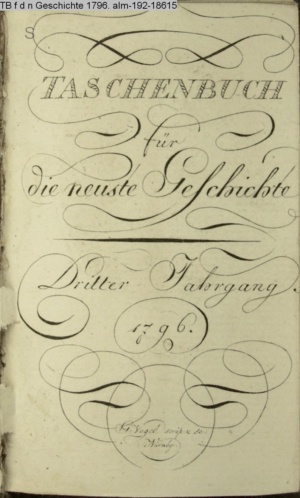 TB f d n Geschichte 1796. alm-192-18615
S
TASCHENBUCH
für
die neuste Geschichte
Dritter Jahrgang.
1796.
Vogel